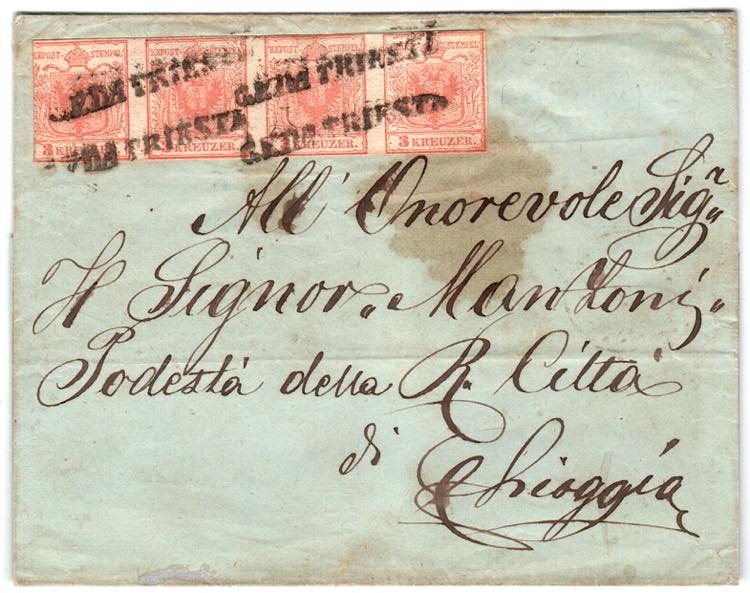 KKPOST-STEMPEL KKPOST-STEMPEL KKPOST-STEMPEL KKPOST-STEMPEL
DA TRIESTE DA TRIESTE
3 KREUZER. 3 KREUZER. 3 KREUZER. 3 KREUZER.
DA TRIESTE DA TRIESTE
All' Onorevole Sigr
Il Signor Manzoni
Podestà della R. Città
di
Chioggia